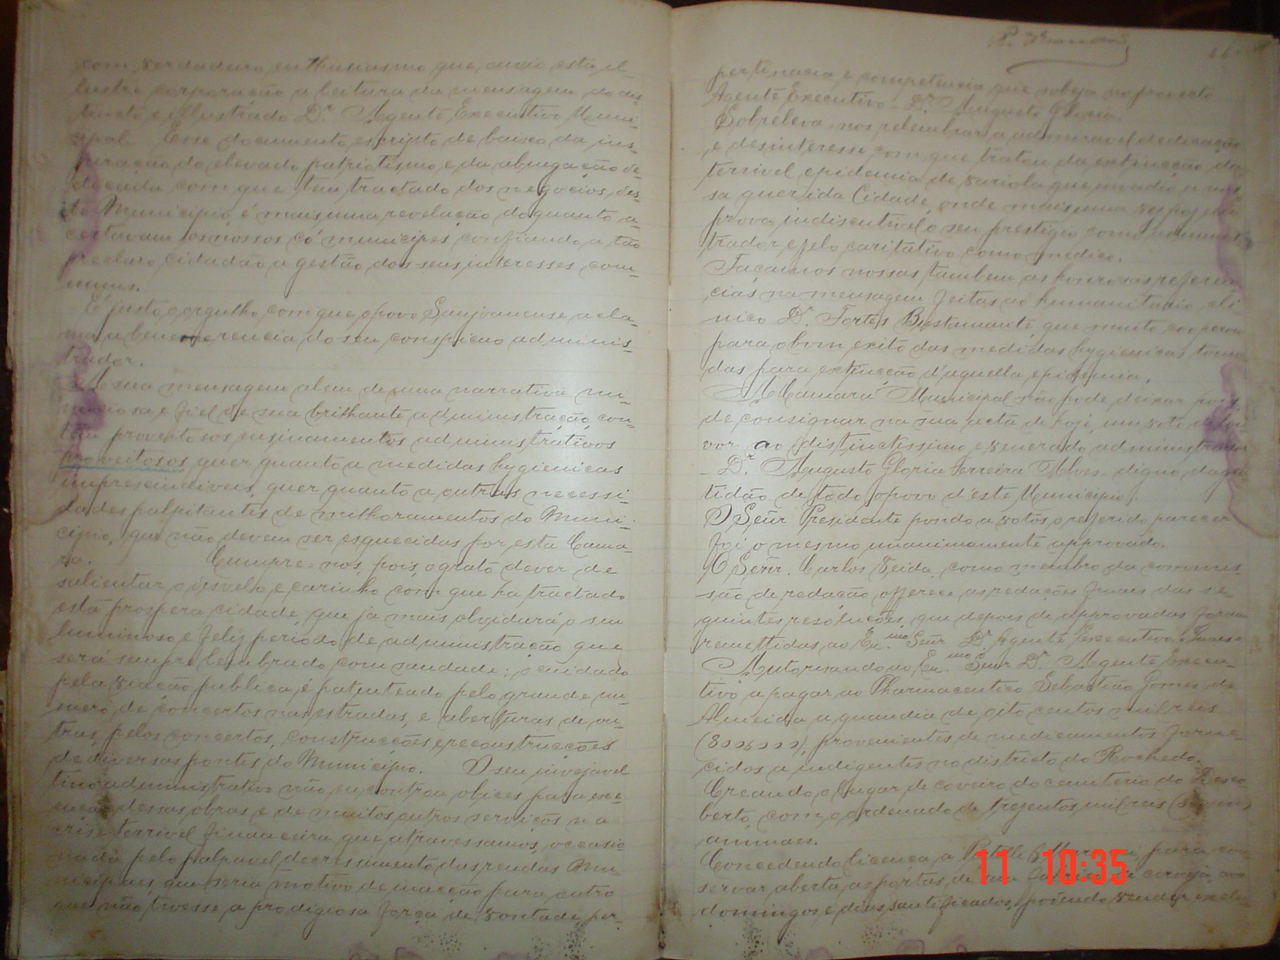 com verdadeiro enthusiasmo que ouvio esta il-
lustre corporação a leitura da mensagem do dis-
tincto e illustrado Dr. Agente Executivo Muni-
cipal. Esse documento, escripto de baixo da ins-
piração do elevado patriotismo e da abnegação de-
dicada com que tem tractado dos negocios des-
te Municipio, é mais uma revelação do quanto a-
certavam os nossos có municipes confiando a tão
preclaro Cidadão a gestão dos seus interesses com-
muns.
É justo o orgulho com que o povo Sanjoanense acla-
ma a benemerencia do seu conspicuo adminis-
trador.
A sua mensagem alem de uma narrativa mi-
nuciosa e fiel de sua brilhante administração, con-
tem proveitosos ensinamentos administrativos
proveitosos, quer quanto a medidas hygienicas
imprescindiveis, quer quanto a outras necessi-
dades palpitantes de melhoramentos do Muni-
cipio, que não devem ser esquecidas por esta Cama-
ra. Cumpre-nos, pois, o grato dever de
salientar o desvelo e carinho com que ha tractado
esta prospera cidade, que já mais olvidará o seu
luminoso e feliz periodo de administração que
será sempre lembrado com saudade; o cuidado
pela viação publica, é patenteado pelo grande nu-
mero de concertos nas estradas, e aberturas de ou-
tras, pelos concertos, construcções e reconstrucções
de diversas pontes do Municipio. O seu invejavel
tino administrativo não encontrou obices para exe-
cução dessas obras e de muitos outros serviços n'a
crise terrivel financeira que atravessamos, occasio-
nada pelo palpavel decrescimento das rendas Mu-
nicipaes, que seria motivo de inacção para outro
que não tivesse a prodigiosa força de vontade per-
pertinacia e competencia que sobeja no provecto
Agente Executivo Dr. Augusto Gloria.
Sobreleva-nos relembrar a admiravel dedicação
e desinteresse com que tratou da extincção da
terrivel epidemia de variola que invadio a nos-
sa querida Cidade, onde mais uma vez poz em
prova, indiscutivel o seu prestigio como adminis-
trador e zelo caritativo como medico.
Façamos nossas tambem as honrosas referen-
cias na mensagem feitas ao humanitario cli-
nico Dr. Fortes Bustamante, que muito cooperou
para o bom exito das medidas hygienicas toma-
das para extincção d'aquella epidemia.
A Camara Municipal não pode deixar, pois,
de consignar na sua acta de hoje, um voto de lou-
vor ao distinctissimo e venerado administrador
Dr. Augusto Gloria Ferreira Alves, digno da gra-
tidão de todo o povo d'este Municipio.
O Señr Presidente pondo a votos o referido parecer
foi o mesmo unanimamente approvado.
O Señr. Carlos como membro da commis-
são de redação offerece as redações finaes das se-
guintes resoluções, que depois de approvadas foram
remettidas ao Exmo Señr Dr. Agente Executivo.
Autorisando ao Exmo Señr Dr. Agente Execu-
tivo a pagar ao Pharmaceutico Sebastião Gomes de
Almeida a quandia de oito centos mil reis
(800$000), provenientes de medicamentos forne-
cidos a indigentes no districto do Rochedo.
Creando o lugar de coveiro do cemiterio do Desco-
berto, com o ordenado de trezentos mil reis
annuaes.
Concedendo licença a para con-
servar aberta as portas de sua cerveja aos
domingos e dias santificados, podendo vender
11 10:35